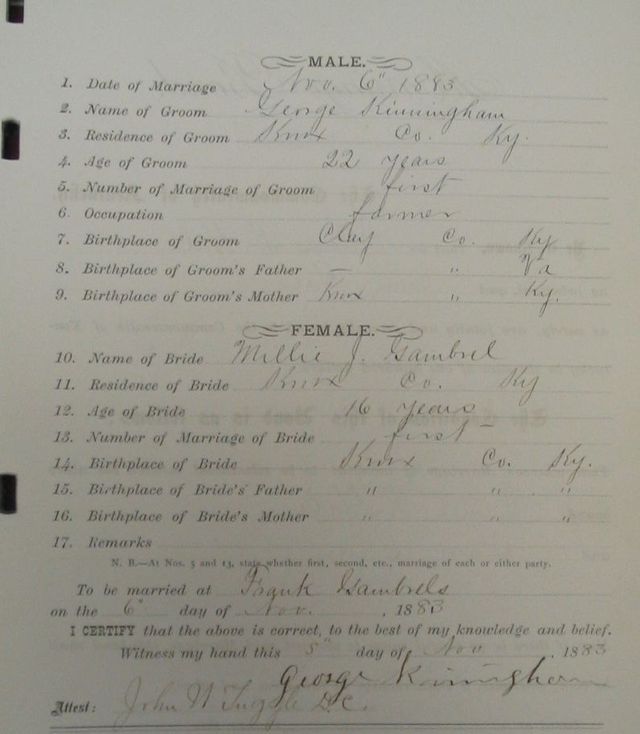 MALE.
1. Date of Marriage Nov. 6" 1883
2. Name of Groom George Kinningham
3. Residence of Groom Knox Co. Ky.
4. Age of Groom 22 years
5. Number of Marriage of Groom first
6. Occupation farmer
7. Birthplace of Groom Clay Co. Ky
8. Birthplace of Groom's Father — " Va
9. Birthplace of Groom's Mother Knox " Ky.
FEMALE.
10. Name of Bride Millie J. Gambrel
11. Residence of Bride Knox Co. Ky
12. Age of Bride 16 years
13. Number of Marriage of Bride first
14. Birthplace of Bride Knox Co. Ky.
15. Birthplace of Bride's Father " " "
16. Birthplace of Bride's Mother " " "
17. Remarks
N. B.—At Nos. 5 and 13, state whether first, second, etc., marriage of each or either party.
To be married at Frank Gambrels
on the 6" day of Nov. , 1883
I CERTIFY that the above is correct, to the best of my knowledge and belief.
Witness my hand this 5" day of Nov , 1883
George Kinningham
Attest: John W Tuggle D.C.